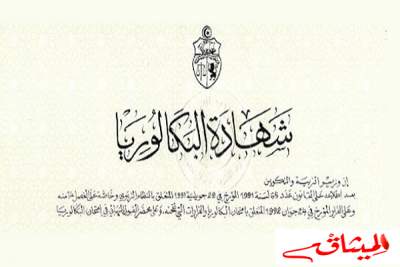 شهادة البكالوريا
إن وزير التربية والتكوين
بعد اطلاعه على القانون عدد 65 لسنة 1991 المؤرخ في 29 جويلية 1991 المتعلق بالنظام التربوي وخاصة على الفصل منه
وعلى القرار المؤرخ في 24 جوان 1992 المتعلق بامتحان البكالوريا والقرارات التي نقحته، وعلى محضر امتحان البكالوريا
الميثاق